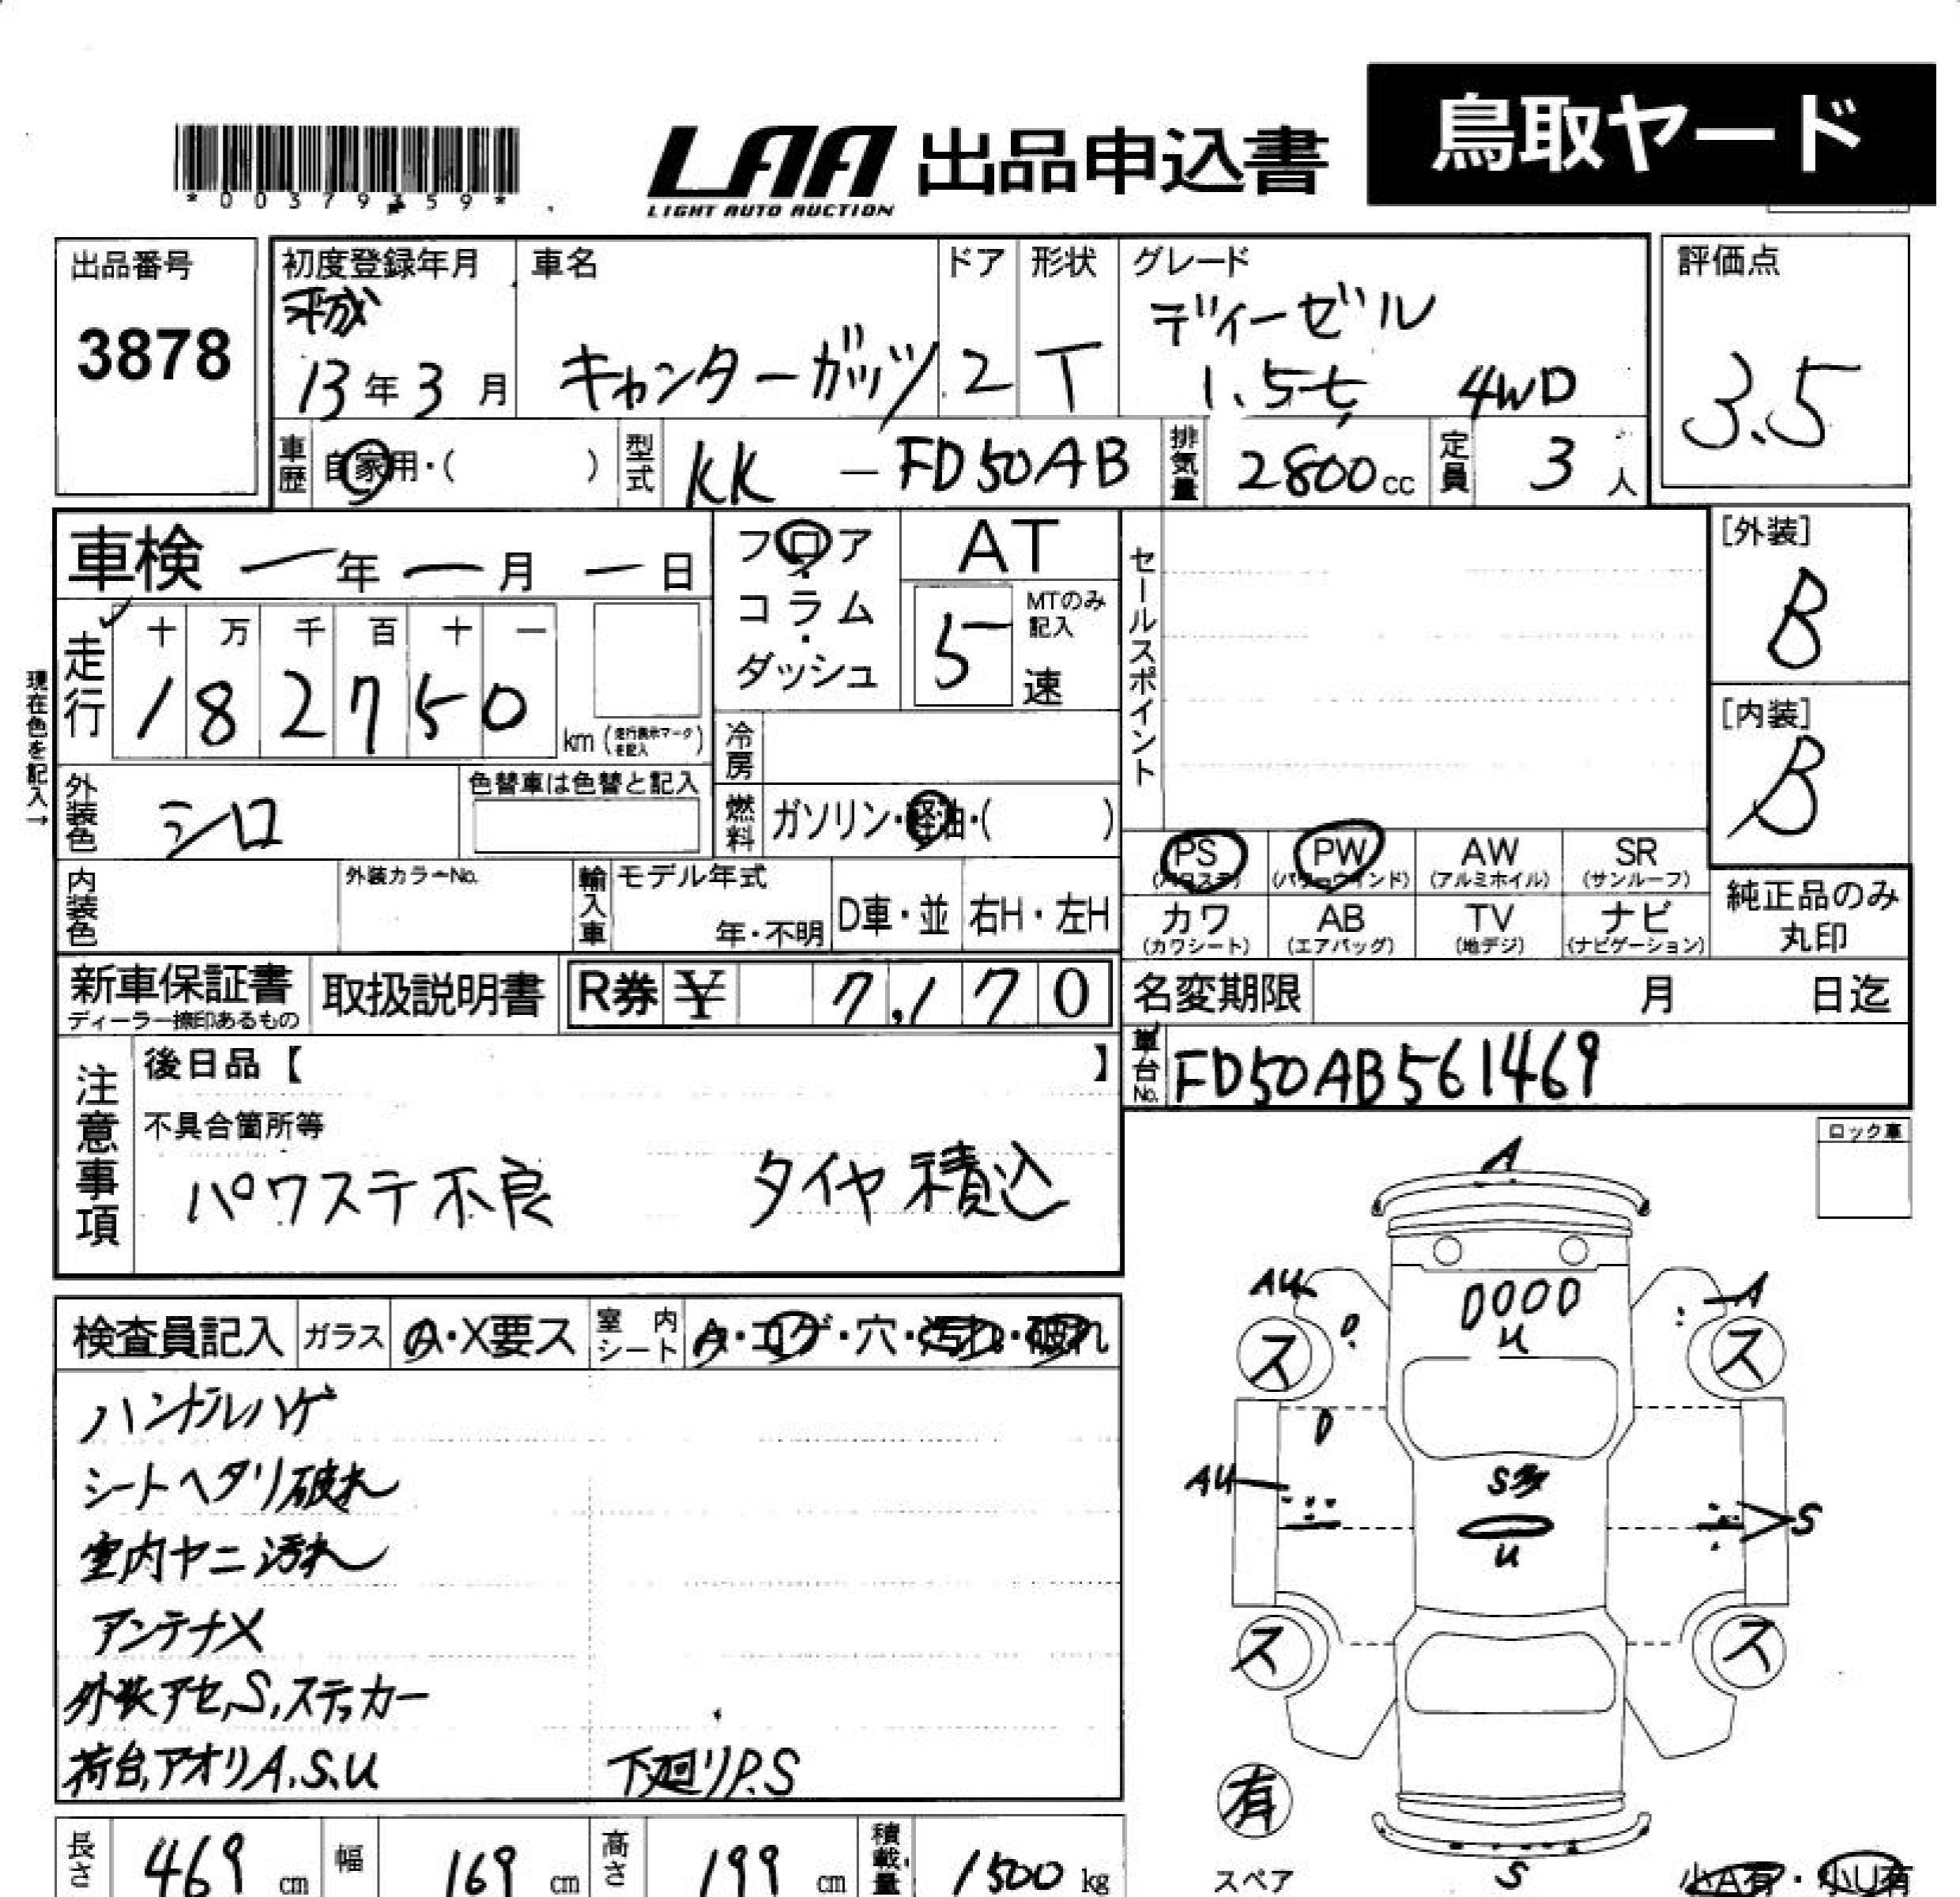 鳥取ヤード
*00379359*
LAA 出品申込書
LIGHT AUTO AUCTION
出品番号
3878
初度登録年月
平成
13年3月
車名
キャンターガッツ
ドア
2
形状
T
グレード
ディーゼル
1.5t 4WD
評価点
3.5
車歴
自家用・( )
型式
KK - FD50AB
排気量
2800cc
定員
3人
車検 一年一月一日
フロア・コラム・ダッシュ
AT
5
MTのみ記入
速
セールスポイント
[外装]
B
[内装]
B
現在色を記入→
走行
十 万 千 百 十 一
1 8 2 7 5 0
km (走行表示マークを記入)
冷房
外装色
シロ
色替車は色替と記入
燃料
ガソリン・軽油・( )
内装色
外装カラーNo.
輸入車
モデル年式
年・不明
D車・並
右H・左H
PS
(パワステ)
PW
(パワーウインド)
AW
(アルミホイル)
SR
(サンルーフ)
カワ
(カワシート)
AB
(エアバッグ)
TV
(地デジ)
ナビ
(ナビゲーション)
純正品のみ
丸印
新車保証書
ディーラー捺印あるもの
取扱説明書
R券 ¥ 7,170
名変期限 月 日迄
車台No.
FD50AB561469
注意事項
後日品【 】
不具合箇所等
パワステ不良 タイヤ積込
ロック車
検査員記入
ガラス
A・X要ス
室内シート
A・コゲ・穴・汚れ・破れ
ハンドルハゲ
シートヘタリ破れ
室内ヤニ汚れ
アンテナX
外装アセ,S,ステッカー
荷台,アオリA.S.U 下廻りP.S
A
AU
A
U
ス
ス
AU
S多
U
S
ス
ス
有
スペア
S
小A有・小U有
長さ
469 cm
幅
169 cm
高さ
199 cm
積載量
1500 kg